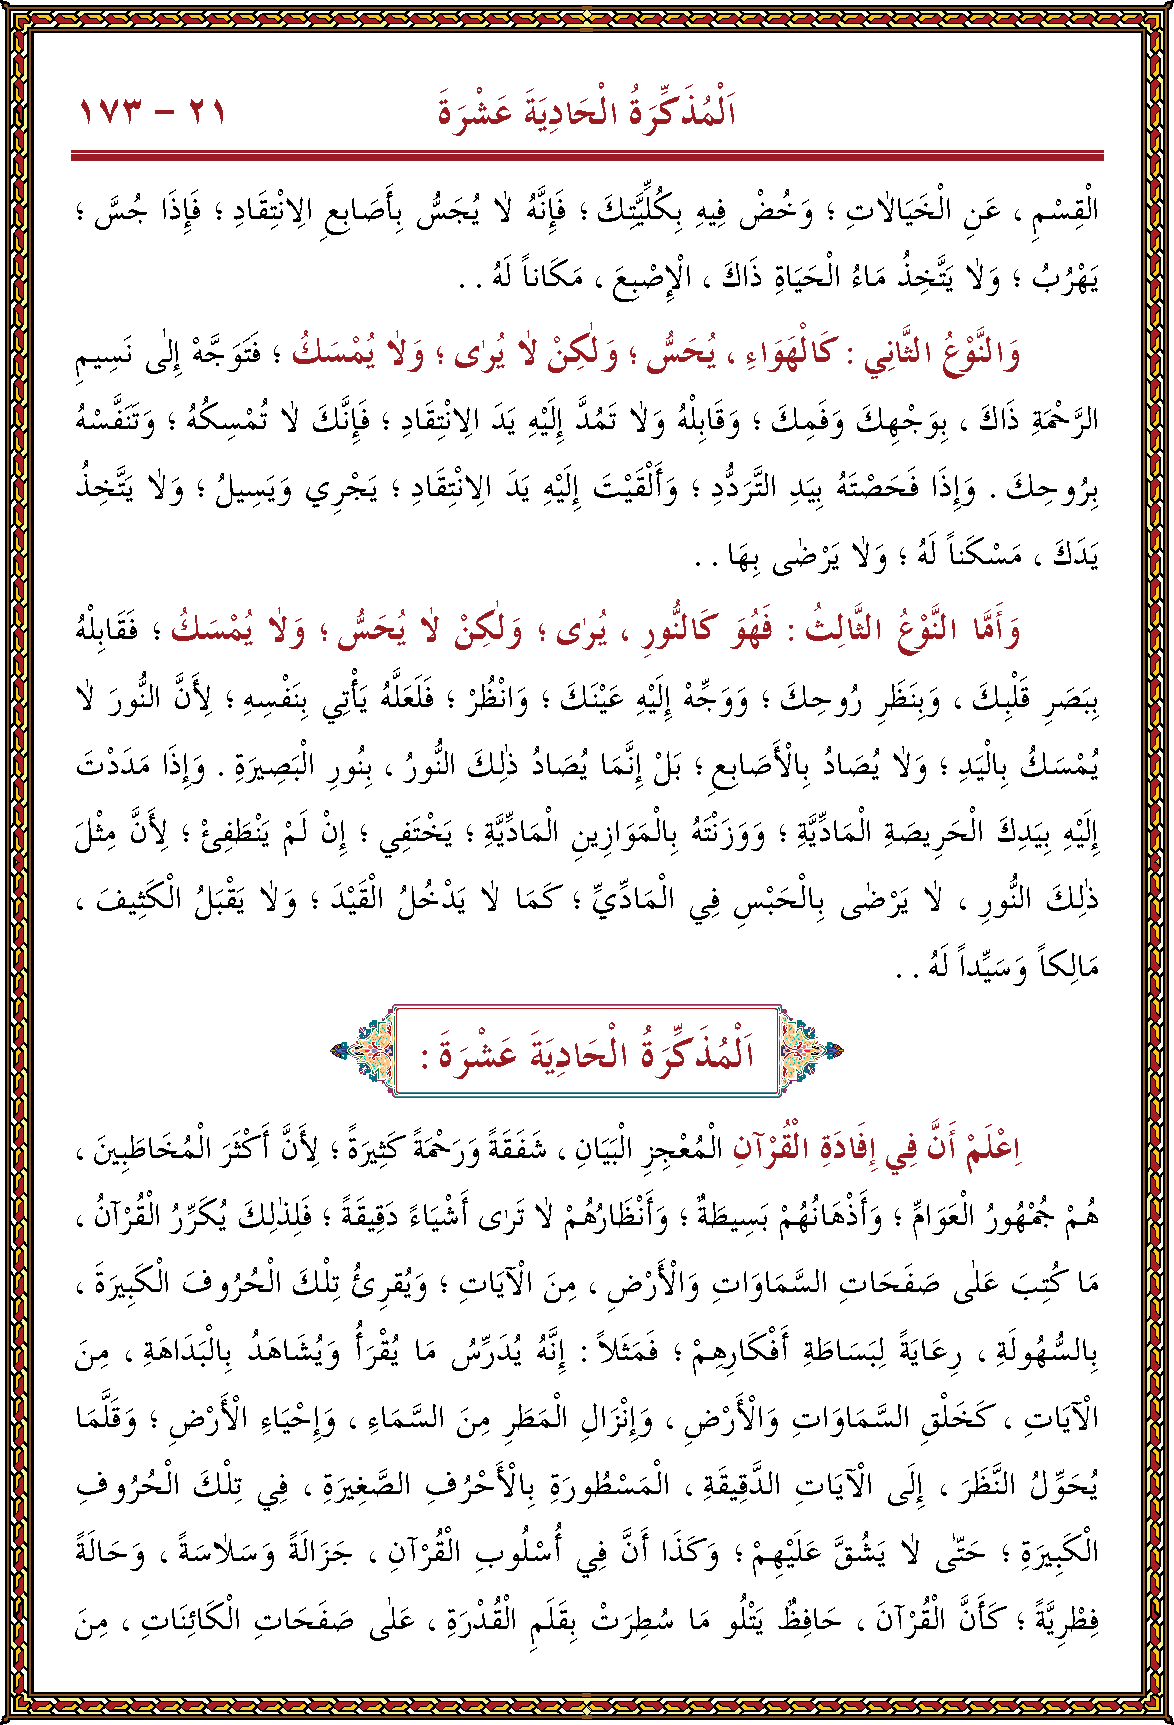 اَلْمُذَكِّرَةُ الْحَادِيَةَ عَشْرَةَ ٢١ – ١٧٣
الْقِسْمِ ، عَنِ الْخَيَالَاتِ ؛ وَخُضْ فِيهِ بِكُلِّيَّتِكَ ؛ فَإِنَّهُ لَا يُجَسُّ بِأَصَابِعِ الِانْتِقَادِ ؛ فَإِذَا جُسَّ ؛
يَهْرُبُ ؛ وَلَا يَتَّخِذُ مَاءُ الْحَيَاةِ ذَاكَ ، الْإِصْبَعَ ، مَكَاناً لَهُ . .
وَالنَّوْعُ الثَّانِي : كَالْهَوَاءِ ، يُحَسُّ ؛ وَلٰكِنْ لَا يُرٰى ؛ وَلَا يُمْسَكُ ؛ فَتَوَجَّهْ إِلٰى نَسِيمِ
الرَّحْمَةِ ذَاكَ ، بِوَجْهِكَ وَفَمِكَ ؛ وَقَابِلْهُ وَلَا تَمُدَّ إِلَيْهِ يَدَ الِانْتِقَادِ ؛ فَإِنَّكَ لَا تُمْسِكُهُ ؛ وَتَنَفَّسْهُ
بِرُوحِكَ . وَإِذَا فَحَصْتَهُ بِيَدِ التَّرَدُّدِ ؛ وَأَلْقَيْتَ إِلَيْهِ يَدَ الِانْتِقَادِ ؛ يَجْرِي وَيَسِيلُ ؛ وَلَا يَتَّخِذُ
يَدَكَ ، مَسْكَناً لَهُ ؛ وَلَا يَرْضٰى بِهَا . .
وَأَمَّا النَّوْعُ الثَّالِثُ : فَهُوَ كَالنُّورِ ، يُرٰى ؛ وَلٰكِنْ لَا يُحَسُّ ؛ وَلَا يُمْسَكُ ؛ فَقَابِلْهُ
بِبَصَرِ قَلْبِكَ ، وَبِنَظَرِ رُوحِكَ ؛ وَوَجِّهْ إِلَيْهِ عَيْنَكَ ؛ وَانْظُرْ ؛ فَلَعَلَّهُ يَأْتِي بِنَفْسِهِ ؛ لِأَنَّ النُّورَ لَا
يُمْسَكُ بِالْيَدِ ؛ وَلَا يُصَادُ بِالْأَصَابِعِ ؛ بَلْ إِنَّمَا يُصَادُ ذٰلِكَ النُّورُ ، بِنُورِ الْبَصِيرَةِ . وَإِذَا مَدَدْتَ
إِلَيْهِ بِيَدِكَ الْحَرِيصَةِ الْمَادِّيَّةِ ؛ وَوَزَنْتَهُ بِالْمَوَازِينِ الْمَادِّيَّةِ ؛ يَخْتَفِي ؛ إِنْ لَمْ يَنْطَفِئْ ؛ لِأَنَّ مِثْلَ
ذٰلِكَ النُّورِ ، لَا يَرْضٰى بِالْحَبْسِ فِي الْمَادِّيِّ ؛ كَمَا لَا يَدْخُلُ الْقَيْدَ ؛ وَلَا يَقْبَلُ الْكَثِيفَ ،
مَالِكاً وَسَيِّداً لَهُ . .
اَلْمُذَكِّرَةُ الْحَادِيَةَ عَشْرَةَ :
اِعْلَمْ أَنَّ فِي إِفَادَةِ الْقُرْآنِ الْمُعْجِزِ الْبَيَانِ ، شَفَقَةً وَرَحْمَةً كَثِيرَةً ؛ لِأَنَّ أَكْثَرَ الْمُخَاطَبِينَ ،
هُمْ جُمْهُورُ الْعَوَامِّ ؛ وَأَذْهَانُهُمْ بَسِيطَةٌ ؛ وَأَنْظَارُهُمْ لَا تَرٰى أَشْيَاءً دَقِيقَةً ؛ فَلِذٰلِكَ يُكَرِّرُ الْقُرْآنُ ،
مَا كُتِبَ عَلٰى صَفَحَاتِ السَّمَاوَاتِ وَالْأَرْضِ ، مِنَ الْآيَاتِ ؛ وَيُقْرِئُ تِلْكَ الْحُرُوفَ الْكَبِيرَةَ ،
بِالسُّهُولَةِ ، رِعَايَةً لِبَسَاطَةِ أَفْكَارِهِمْ ؛ فَمَثَلاً : إِنَّهُ يُدَرِّسُ مَا يُقْرَأُ وَيُشَاهَدُ بِالْبَدَاهَةِ ، مِنَ
الْآيَاتِ ، كَخَلْقِ السَّمَاوَاتِ وَالْأَرْضِ ، وَإِنْزَالِ الْمَطَرِ مِنَ السَّمَاءِ ، وَإِحْيَاءِ الْأَرْضِ ؛ وَقَلَّمَا
يُحَوِّلُ النَّظَرَ ، إِلَى الْآيَاتِ الدَّقِيقَةِ ، الْمَسْطُورَةِ بِالْأَحْرُفِ الصَّغِيرَةِ ، فِي تِلْكَ الْحُرُوفِ
الْكَبِيرَةِ ؛ حَتّٰى لَا يَشُقَّ عَلَيْهِمْ ؛ وَكَذَا أَنَّ فِي أُسْلُوبِ الْقُرْآنِ ، جَزَالَةً وَسَلَاسَةً ، وَحَالَةً
فِطْرِيَّةً ؛ كَأَنَّ الْقُرْآنَ ، حَافِظٌ يَتْلُو مَا سُطِرَتْ بِقَلَمِ الْقُدْرَةِ ، عَلٰى صَفَحَاتِ الْكَائِنَاتِ ، مِنَ